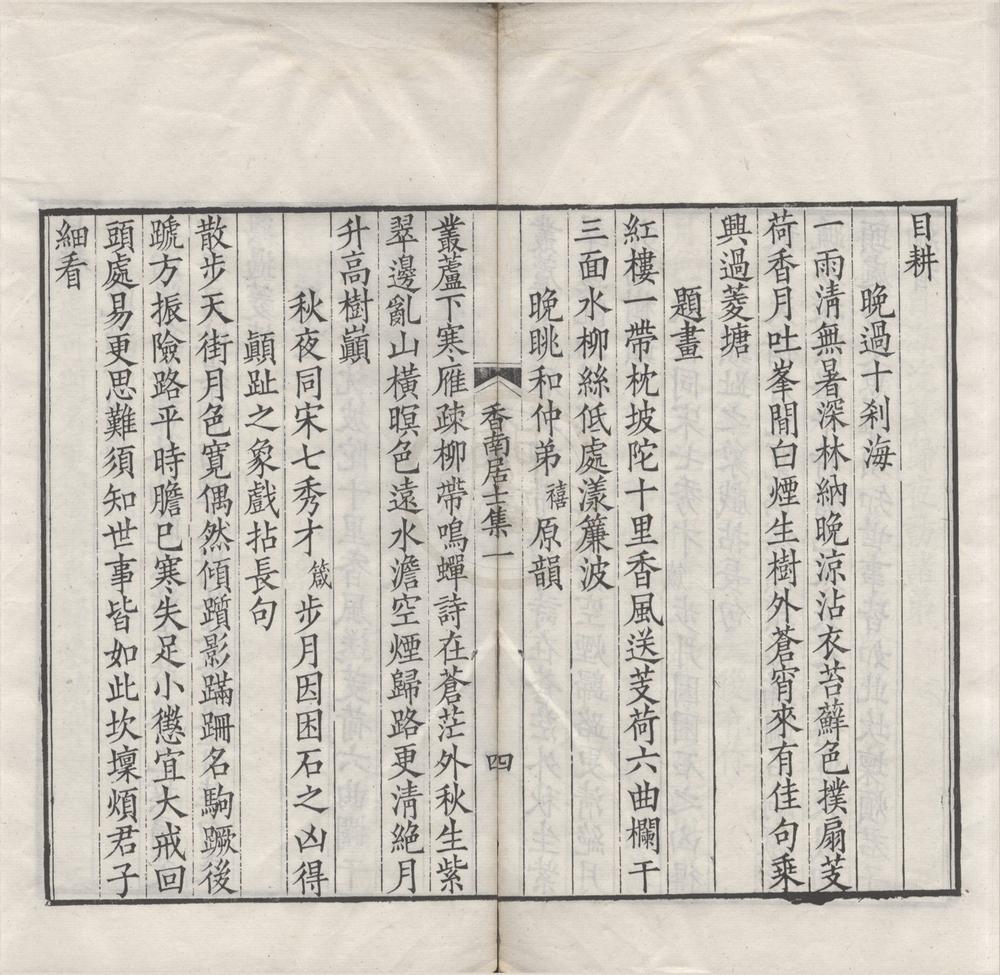 目耕
晚過十刹海
一雨清無暑深林納晚涼沾衣苔蘚色撲扇芰
荷香月吐峯間白煙生樹外蒼宵來有佳句乘
興過菱塘
題畫
紅樓一帶枕坡陀十里香風送芰荷六曲欄干
三面水柳絲低處漾簾波
晚眺和仲弟禧原韻
叢蘆下寒雁疎柳帶鳴蟬詩在蒼茫外秋生紫
香南居士集一
四
翠邊亂山橫暝色遠水澹空煙歸路更清絶月
升高樹巔
秋夜同宋七秀才箴步月因困石之凶得
顚趾之象戲拈長句
散步天街月色寬偶然傾躓影蹣跚名駒蹶後
蹏方振險路平時膽已寒失足小懲宜大戒回
頭處易更思難須知世事皆如此坎壈煩君子
細看